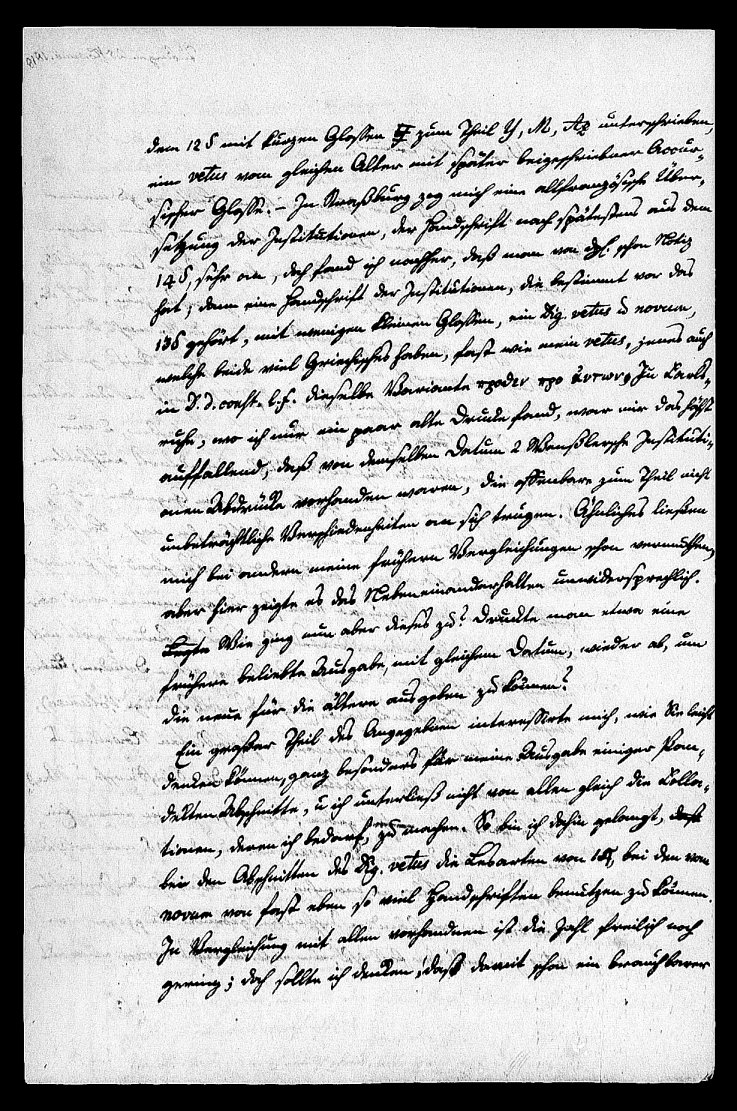 dem 12 § mit kurzen Glossen zum Theil Y, M, Az unterschrieben,
ein vetus vom gleichen Alter mit später beigeschriebner Accur-
sischer Glosse. – In Straßburg zog mich eine altfranzösische Über-
setzung der Institutionen, der Handschrift nach spätestens aus dem
14 §, sehr an, doch fand ich nachher, daß man von schon Notiz
hat; dann eine Handschrift der Institutionen, die bestimmt vor das
13 § gehört, mit wenigen kleinen Glossen, ein Dig. vetus u novum,
welche beide viel Griechisches haben, fast wie mein vetus, jenes auch
in D. d. const. l. f. dieselbe Variante In Carls-
ruhe, wo ich nur ein paar alte Drucke fand, war mir das höchst
auffallend, daß von demselben Datum 2 Wenßlersche Instituti-
onen Abdrücke vorhanden waren, die offenbare zum Theil nicht
unbeträchtliche Verschiedenheiten an sich trugen. Ähnliches ließen
mich bei andern meine frühern Vergleichungen schon vermuthen,
aber hier zeigte es das Nebeneinanderhalten unwidersprechlich.
Wie ging nun aber dieses zu? Druckte man etwa eine
frühere beliebte Ausgabe, mit gleichem Datum, wieder ab, um
die neue für die ältere ausgeben zu können?
Ein großer Theil des Angegebnen interessirte mich, wie Sie leicht
denken können, ganz besonders für meine Ausgabe einiger Pan-
dekten Abschnitte, u ich unterließ nicht von allen gleich die Colla-
tionen, deren ich bedarf, zu machen. So bin ich dahin gelangt,
bei den Abschnitten des Dig. vetus die Lesarten von 18, bei den vom
novum von fast eben so viel Handschriften benutzen zu können.
In Vergleichung mit allen vorhandnen ist die Zahl freilich noch
gering; doch sollte ich denken, daß damit schon ein brauchbarer